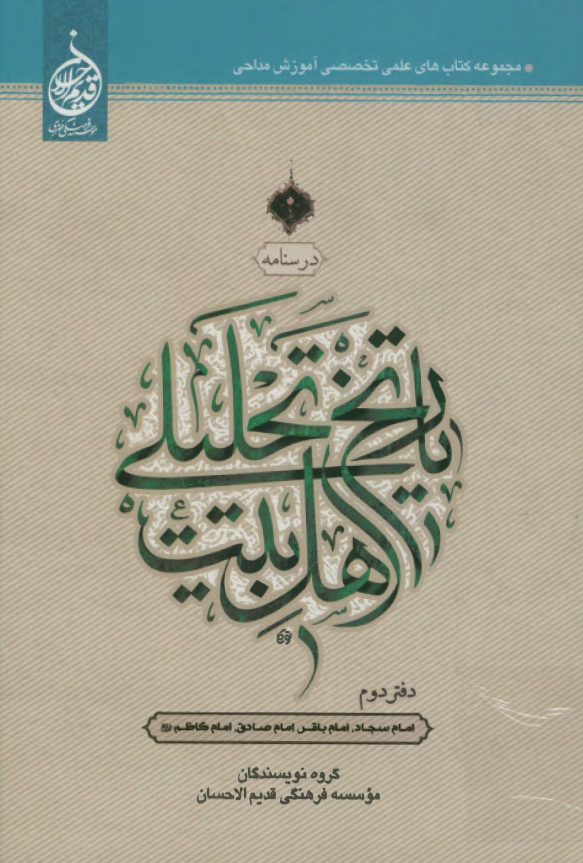 مجموعه کتاب های علمی تخصصی آموزش مداحی
قدیم الاحسان
درسنامه
تاریخ تحلیلی
اهل بیت
دفتر دوم
امام سجاد، امام باقر، امام صادق، امام کاظم
گروه نویسندگان
مؤسسه فرهنگی قدیم الاحسان